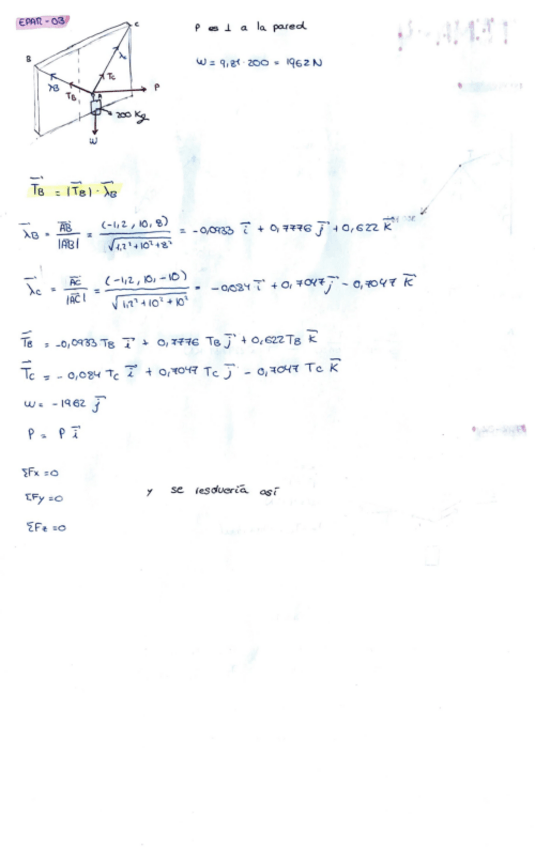 EPAR-03
P es ⊥ a la pared
W = 9,81·200 = 1962 N
C
B
λB
TB
TC
λ
A
P
200 Kg
W
T⃗B = |T⃗B|·λ⃗B
λ⃗B = AB⃗/|AB⃗| = (-1,2, 10, 8)/√(1,2²+10²+8²) = -0,0933 i⃗ + 0,7776 j⃗ + 0,622 k⃗
λ⃗C = AC⃗/|AC⃗| = (-1,2, 10, -10)/√(1,2²+10²+10²) = -0,084 i⃗ + 0,7047 j⃗ - 0,7047 k⃗
T⃗B = -0,0933 TB i⃗ + 0,7776 TB j⃗ + 0,622 TB k⃗
T⃗C = -0,084 TC i⃗ + 0,7047 TC j⃗ - 0,7047 TC k⃗
W = -1962 j⃗
P = P i⃗
ΣFx = 0
ΣFy = 0 y se resolvería así
ΣFz = 0